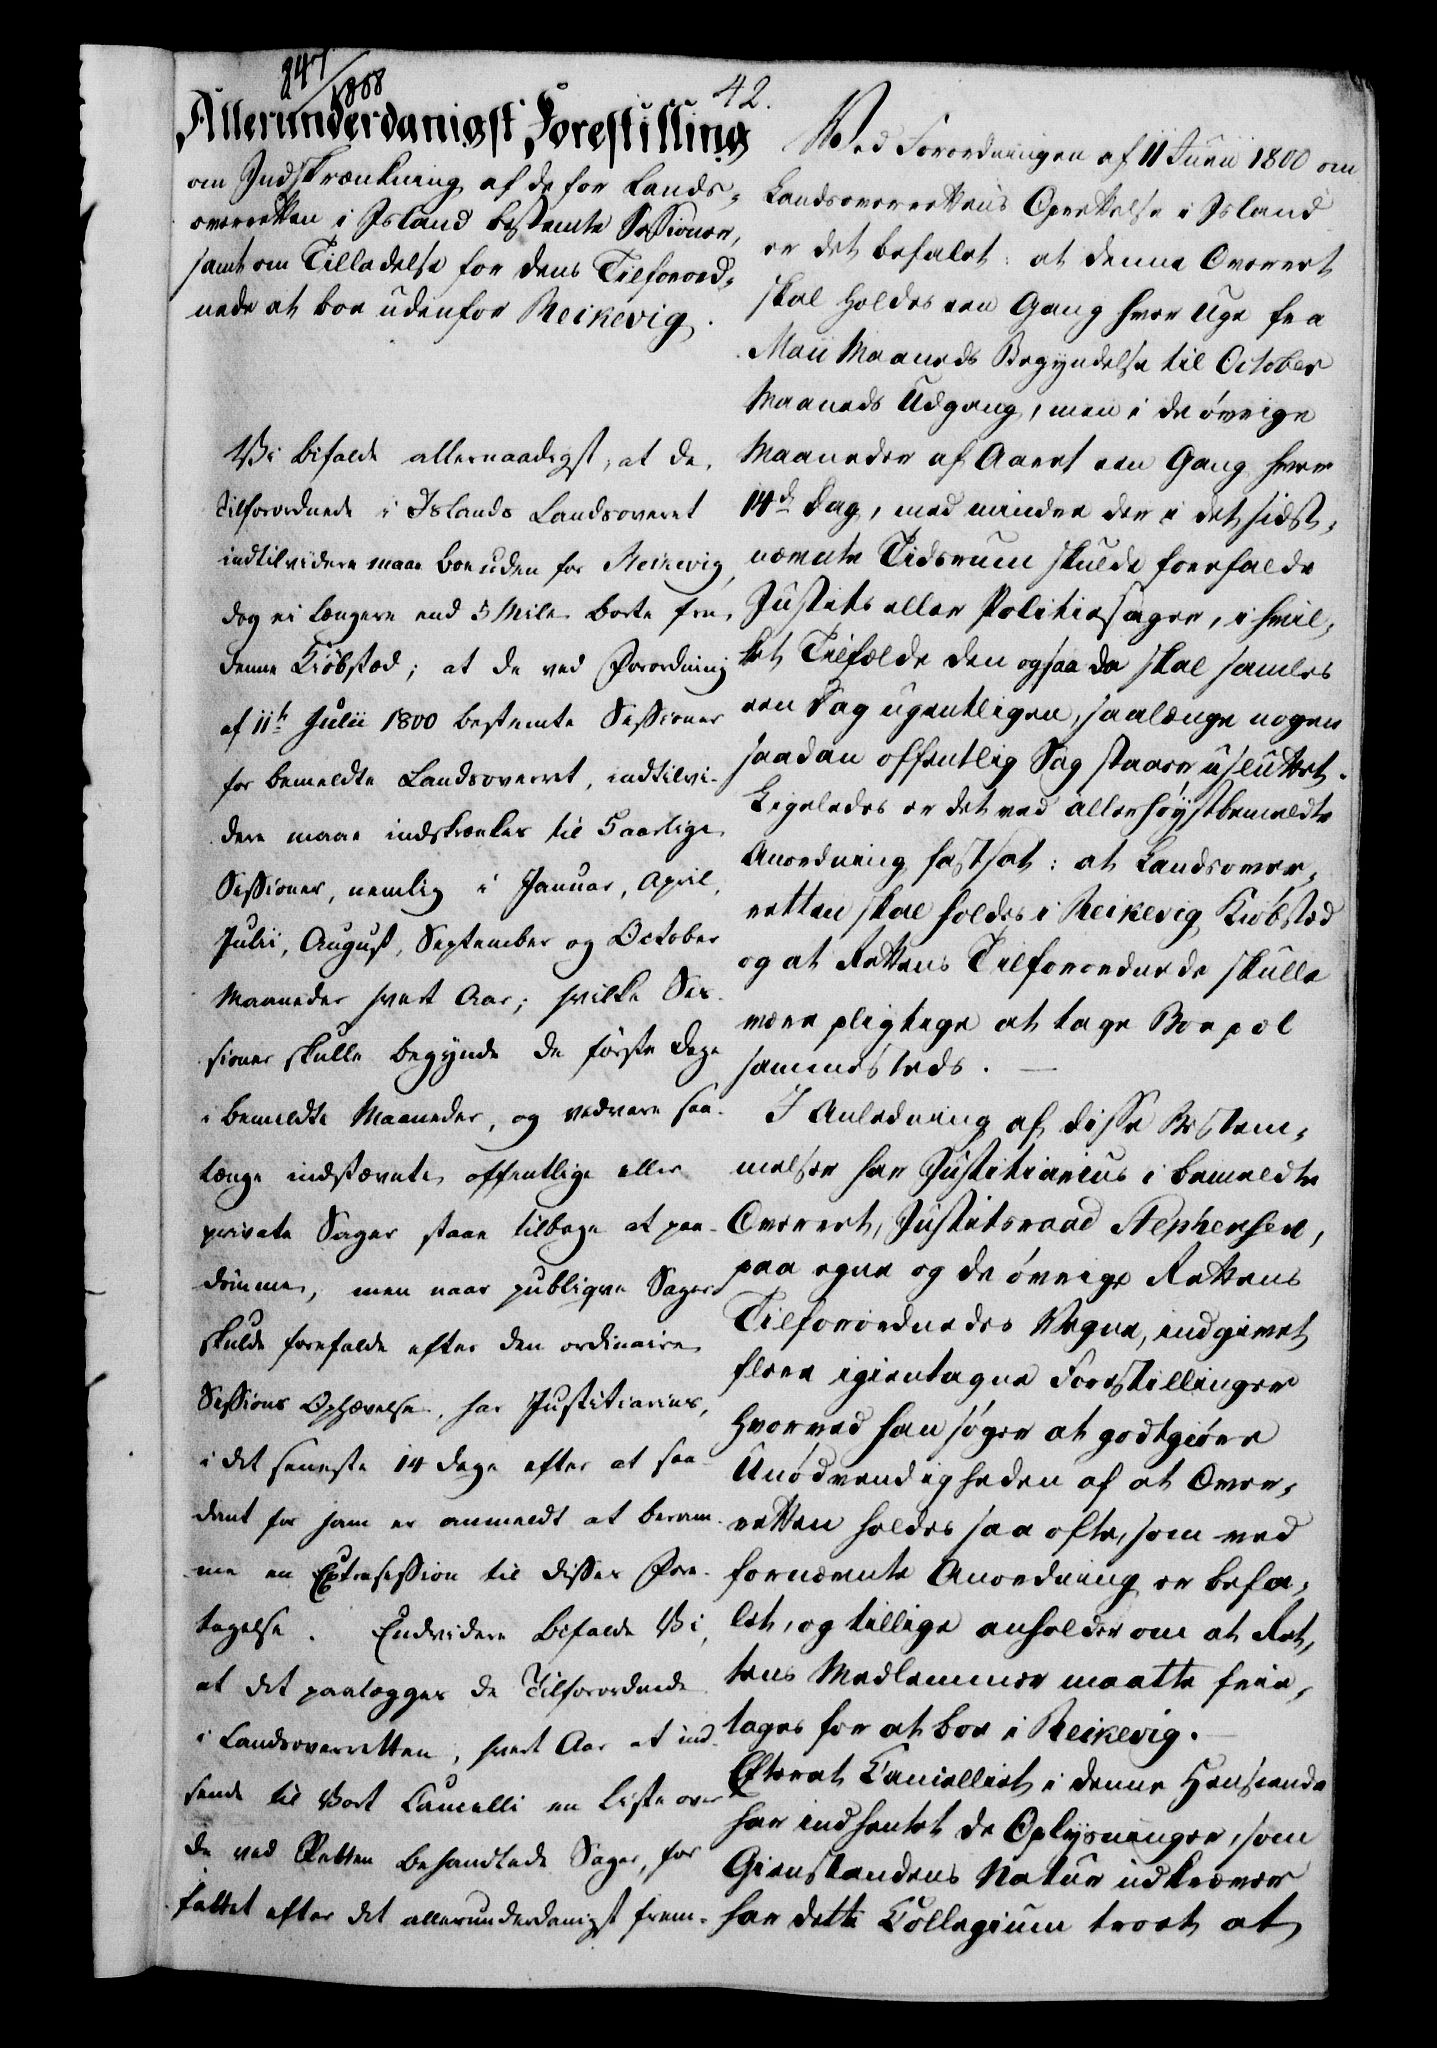 847/1808
42.
Allerunderdanigst Forestilling
om Indskrænkning af de for Lands-
overretten i Island bestemte Sessioner,
samt om Tilladelse for dens Tilforord-
nede at boe udenfor Reikevig.
Vi bifalde allernaadigst, at de
Tilforordnede i Islands Landsoverret
indtilvidere maae boe uden for Reikevig,
dog ei længere end 5 Mile borte fra
denne Kiøbstad; at de ved Forordning
af 11te Julii 1800 bestemte Sessioner
for bemeldte Landsoverret, indtilvi-
dere maae indskrænkes til 5 aarlige
Sessioner, nemlig i Januar, April,
Julii, August, September og October
Maaneder hvert Aar; hvilke Ses-
sioner skulle begynde de første Dage
i bemeldte Maaneder, og vedvare saa-
længe indstævnte offentlige eller
private Sager staae tilbage at paa-
dømmes, men naar publiqve Sager
skulde forefalde efter den ordinaire
Sessions Ophævelse, har Justitiarius,
i det seneste 14 Dage efter at saa-
dant for ham er anmeldt at beram-
me en Extrasession til disses Fore-
tagelse. Endvidere bifalde Vi,
at det paalægges de Tilforordnede
i Landsoverretten, hvert Aar at ind-
sende til Vort Cancelli en Liste over
de ved Retten behandlede Sager, for-
fattet efter det allerunderdanigst frem-
Ved Forordningen af 11 Junii 1800 om
Landsoverrettens Oprettelse i Island
er det befalet: at denne Overret
skal holdes een Gang hver Uge fra
Maii Maaneds Begyndelse til October
Maaneds Udgang, men i de øvrige
Maaneder af Aaret een Gang hver
14de Dag, med mindre der i det sidst-
nævnte Tidsrum skulde forefalde
Justits eller Politiesager, i hvil-
ket Tilfælde den ogsaa da skal samles
een Dag ugentligen, saalænge nogen
saadan offentlig Sag staaer usluttet.
Ligeledes er det ved allerhøystbemeldte
Anordning fastsat: at Landsover-
retten skal holdes i Reikevig Kiøbstæd
og at Rettens Tilforordnede skulle
være pligtige at tage Boepæl
sammesteds. —
I Anledning af disse Bestem-
melser har Justitiarius i bemeldte
Overret, Justitsraad Stephensen,
paa egne og de øvrige Rettens
Tilforordnedes Vegne, indgivet
flere igientagne Forestillinger
hvorved han søger at godtgiøre
Unødvendigheden af at Over-
retten holdes saa ofte, som ved
fornævnte Anordning er befa-
let, og tillige anholder om at Ret-
tens Medlemmer maatte frie-
tages for at boe i Reikevig. —
Efterat Cancelliet i denne Henseende
har indhentet de Oplysninger, som
Gienstandens Natur udkræver
har dette Collegium troet at